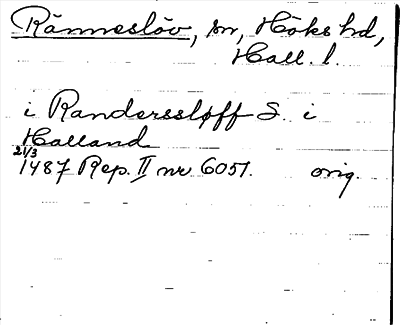 Ränneslöv, sn, Höks hd,
Hall. l.
i Randerssløff S. i
Halland
21/3
1487 Rep. II nr 6051. orig.